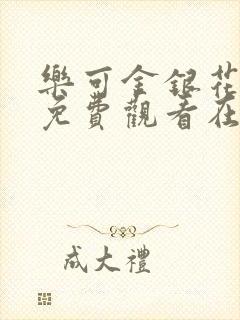 樂可金銀花
免費觀看在
成大禮